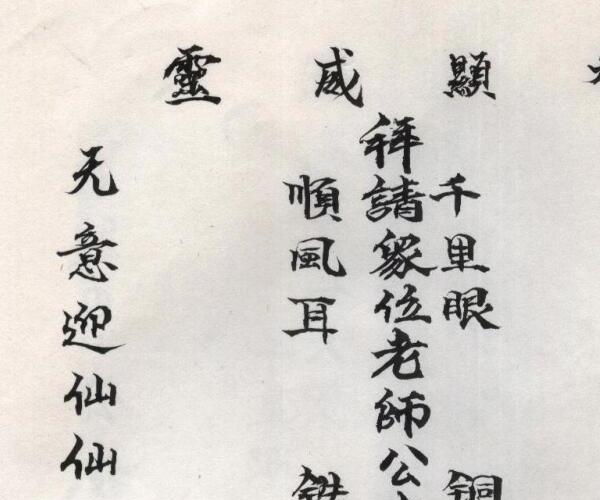 顯威靈
千里眼
銅
拜請衆位老師公
順風耳
无意迎仙仙